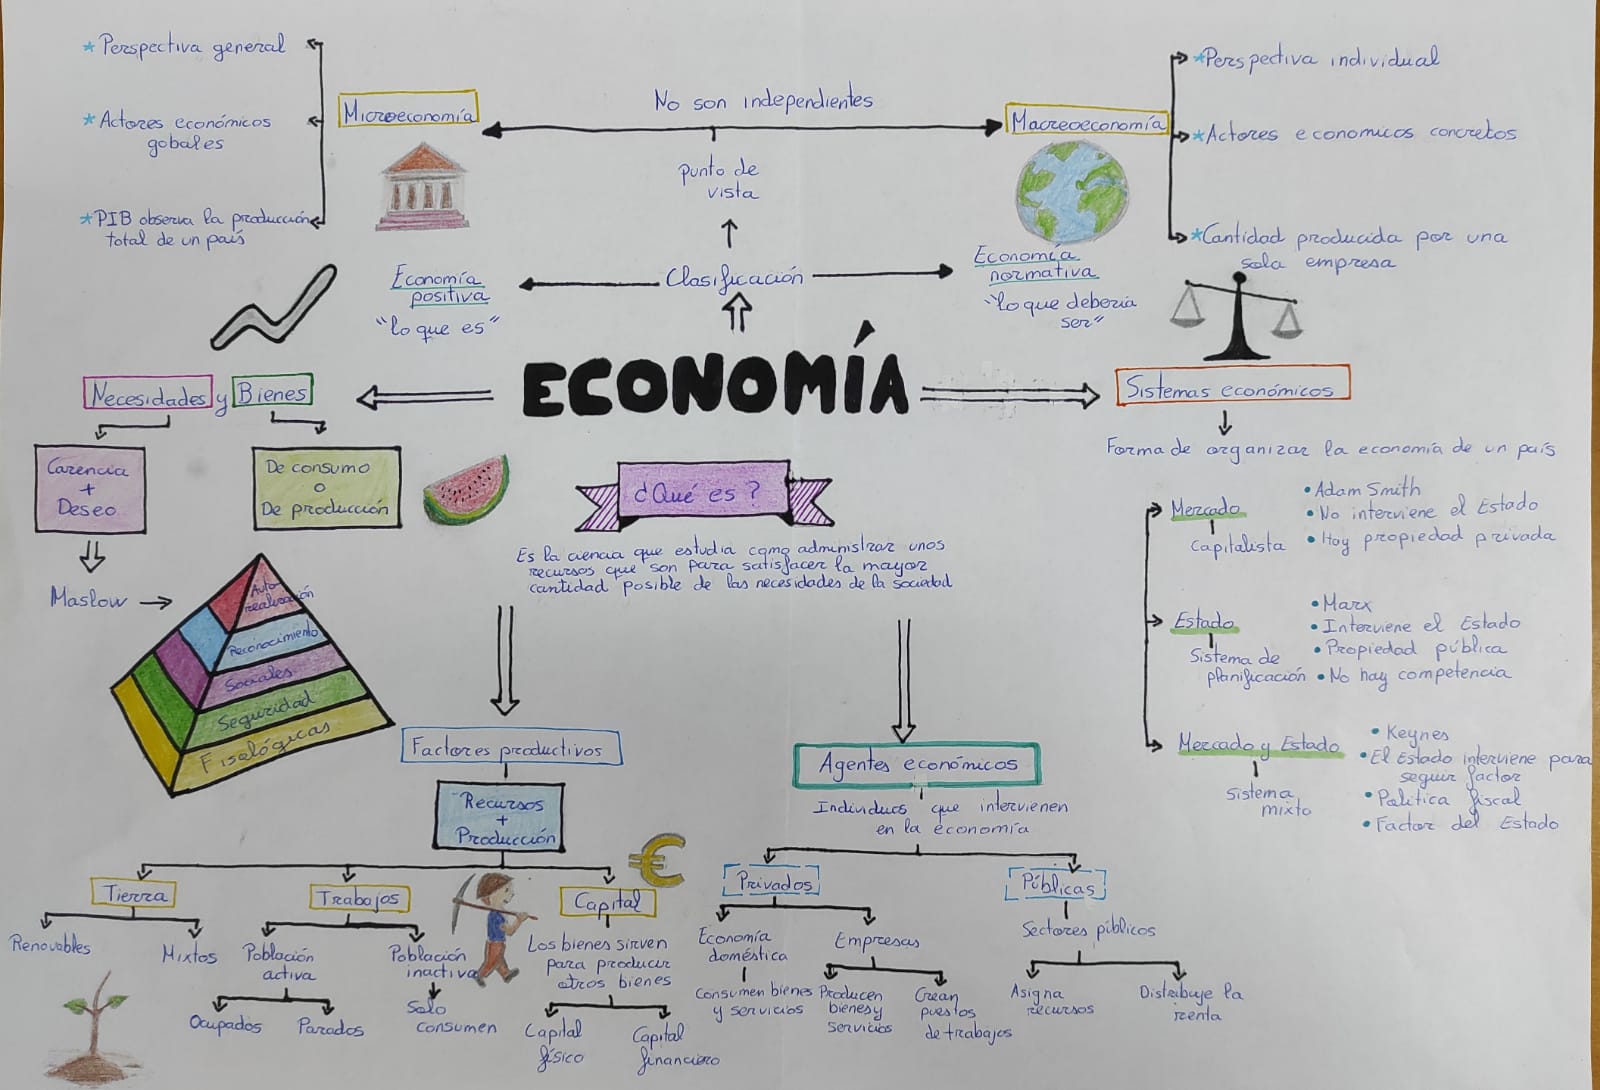 * Perspectiva general
* Actores económicos
gobales
* PIB observa la producción
total de un país
Microeconomía
No son independientes
Macreoeconomía
* Perspectiva individual
* Actores economicos concretos
* Cantidad producida por una
sola empresa
punto de
vista
Clasificación
Economía
positiva
"lo que es"
Economía
normativa
"lo que deberia
ser"
ECONOMÍA
Necesidades y Bienes
Carencia
+
Deseo
De consumo
o
De producción
Maslow
Auto
realización
Reconocimiento
Sociales
Seguridad
Fisológicas
¿Qué es?
Es la ciencia que estudia como administrar unos
recursos que son para satisfacer la mayor
cantidad posible de las necesidades de la sociedad
Sistemas económicos
Forma de organizar la economía de un país
Mercado
Capitalista
• Adam Smith
• No interviene el Estado
• Hay propiedad privada
Estado
Sistema de
planificación
• Marx
• Interviene el Estado
• Propiedad pública
• No hay competencia
Mercado y Estado
Sistema
mixto
• Keynes
• El Estado interviene para
seguir factor
• Politica fiscal
• Factor del Estado
Factores productivos
Recursos
+
Producción
Tierra
Renovables
Mixtos
Trabajos
Población
activa
Ocupados
Parados
Población
inactiva
Solo
consumen
€
Capital
Los bienes sirven
para producir
otros bienes
Capital
físico
Capital
financiero
Agentes económicos
Individuos que intervienen
en la economía
Privados
Economía
doméstica
Consumen bienes
y servicios
Empresas
Producen
bienes y
servicios
Crean
puestos
de trabajos
Públicas
Sectores públicos
Asigna
recursos
Distribuje la
renta